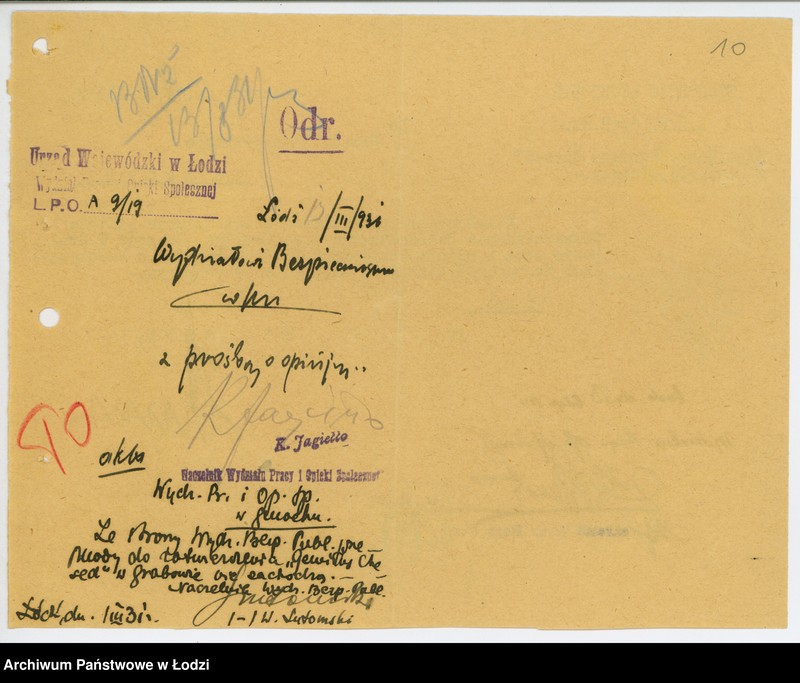 10
Odr.
Urząd Wojewódzki w Łodzi
Wydział Pracy i Opieki Społecznej
L.P.O. A 9/19
Łódź /III/931
Wydziałowi Bezpieczeństwa
w m
z prośbą o opinję..
K. Jagiełło
K. Jagiełło
Naczelnik Wydziału Pracy i Opieki Społecznej
akta
Wydz. Pr. i Op. Sp.
w gmachu.
Ze strony Wydz. Bezp. Publ.
do zatwierdzenia „Gemilus Che
sed" w Grabowie nie zachodzą. —
Naczelnik Wydz. Bezp. Publ.
Łódź, dn. III 31 r.
/-/ W. Lutomski
Archiwum Państwowe w Łodzi